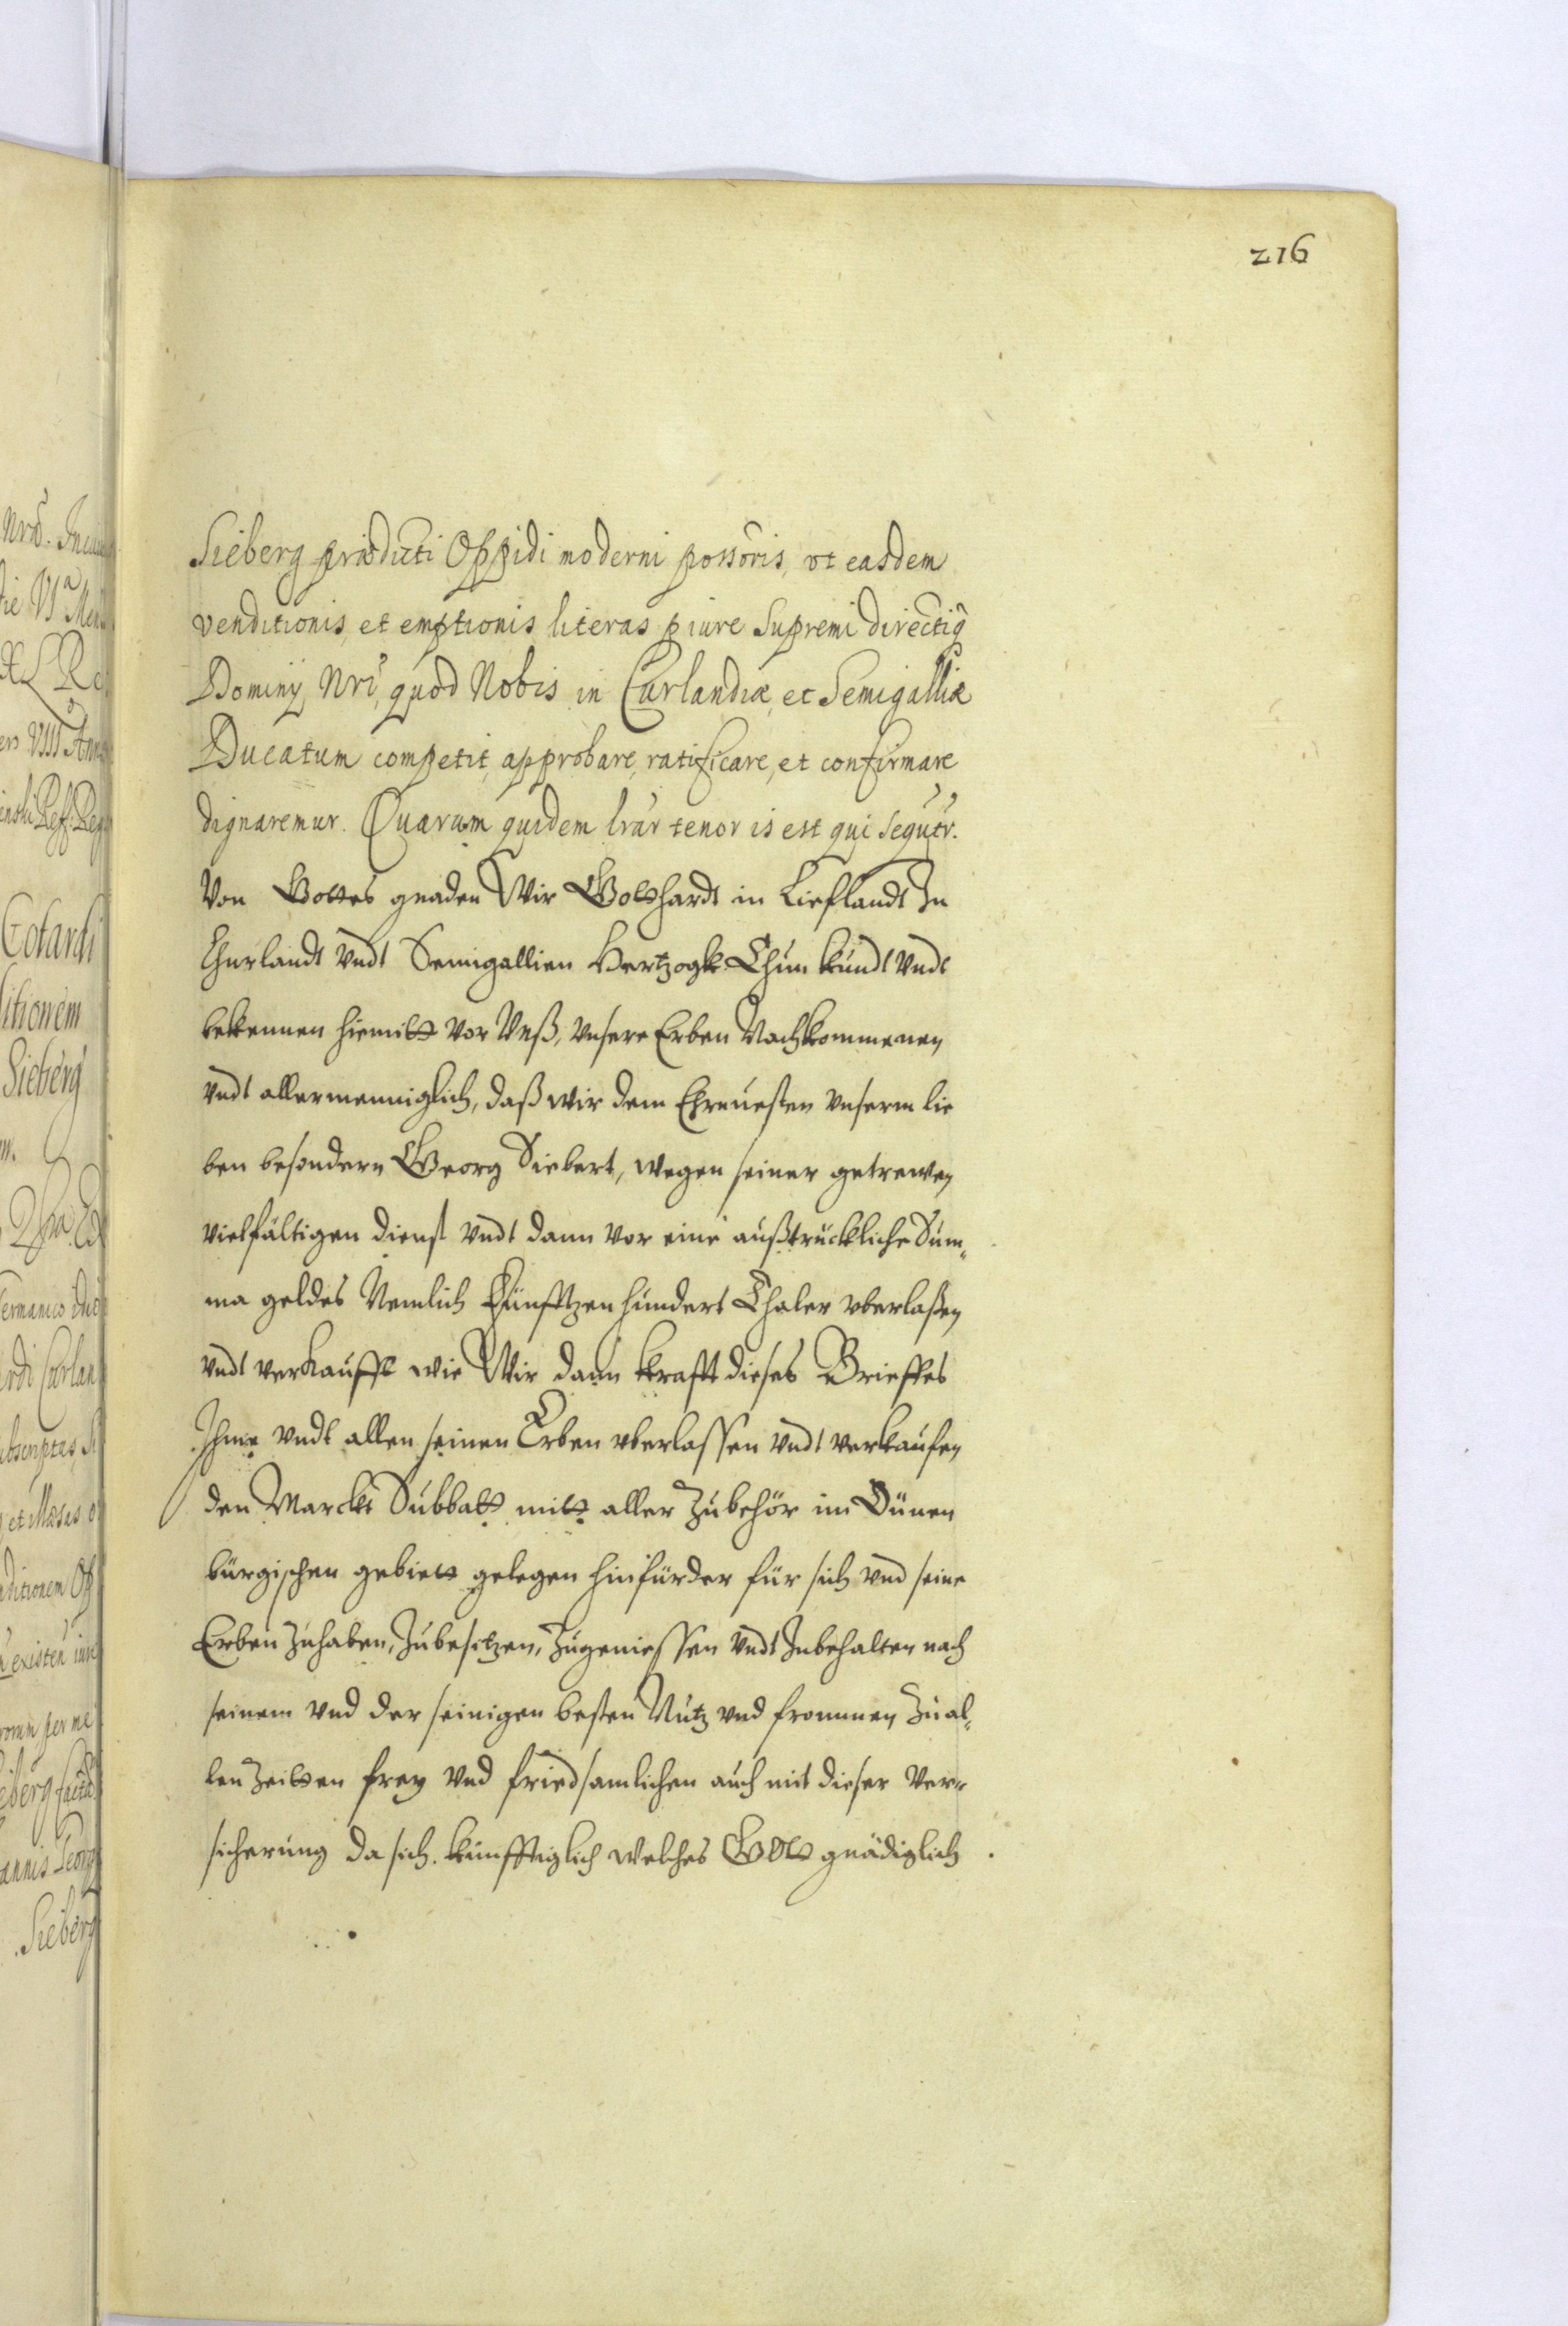 216
Sieberg prædicti Oppidi moderni possoris, ut easdem
venditionis, et emptionis literas p iure Supremi directiq
Dominij Nri, quod Nobis in Curlandiæ, et Semigalliæ
Ducatum competit, approbare, ratificare, et confirmare
dignaremur. Quarum quidem lrar tenor is est qui sequtr.
Von Gottes gnaden Wir Gotthardt in Lieflandt Zu
Churlandt vndt Semigallien Hertzogk Thun kundt vndt
bekennen hiemitt vor Vnß, vnsere Erben Nachkommenen
vndt allermenniglich, daß wir dem Ehrnuesten vnserm lie
ben besondern Georg Siebert, wegen seiner getrewen
vielfältigen dienst vndt dann vor eine außtrückliche Sum„
ma geldes Nemlich Fünfftzen hundert Thaler vberlaßen
vndt verkaufft wie Wir dann krafft dieses Brieffes
Ihme vndt allen seinen Erben vberlassen vndt verkaufen
den Marckt Subbatt mitt aller Zubehör im Dünen
bürgischen gebiett gelegen hinfürder für sich vnd seine
Erben zuhaben, Zubesitzen, Zugeniessen vndt Zubehalten nach
seinem vnd der seinigen besten Nutz vnd frommen Zu al„
len Zeitten frey vnd friedsamlichen auch mit dieser Ver„
sicherung da sich künfftiglich welches Gott gnädiglich